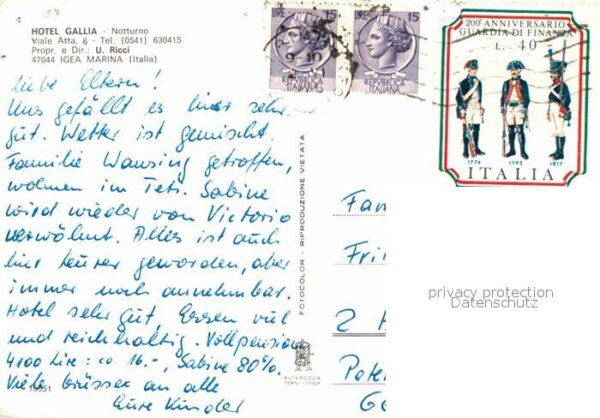 HOTEL GALLIA - Notturno
Viale Atta, 6 - Tel. (0541) 630415
Propr. e Dir.: U. Ricci
47044 IGEA MARINA (Italia)
Liebe Eltern!
Uns gefällt es hier sehr
gut. Wetter ist gemischt.
Familie Wansing getroffen,
wohnen im Teti. Sabine
wird wieder von Victorio
verwöhnt. Alles ist auch
hier teurer geworden, aber
immer noch annehmbar.
Hotel sehr gut, Essen viel
und reichhaltig. Vollpension
4100 Lire = ca. 16.-, Sabine 80%.
Viele Grüsse an alle
Eure Kinder
15051
FOTOCOLOR - RIPRODUZIONE VIETATA
ALTEROCCA
TERNI - ITALY
LIRE 15
REPUBBLICA
ITALIANA
LIRE 15
REPUBBLICA
ITALIANA
9-10
200° ANNIVERSARIO
GUARDIA DI FINANZA
L. 40
1774 1795 1817
ITALIA
Fam
Fri
2 H
Pete
Ge
privacy protection
Datenschutz